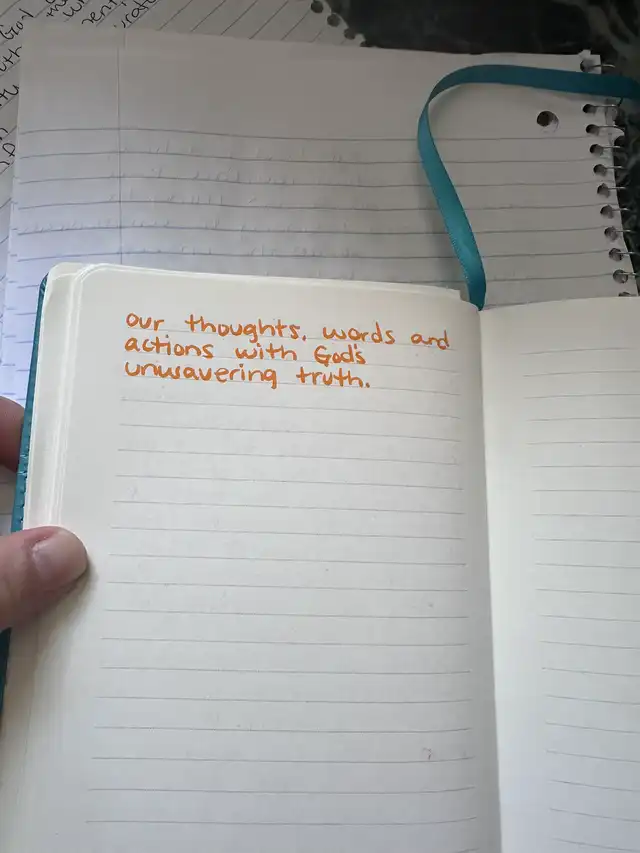 God
our thoughts, words and
actions with God's
unwavering truth.